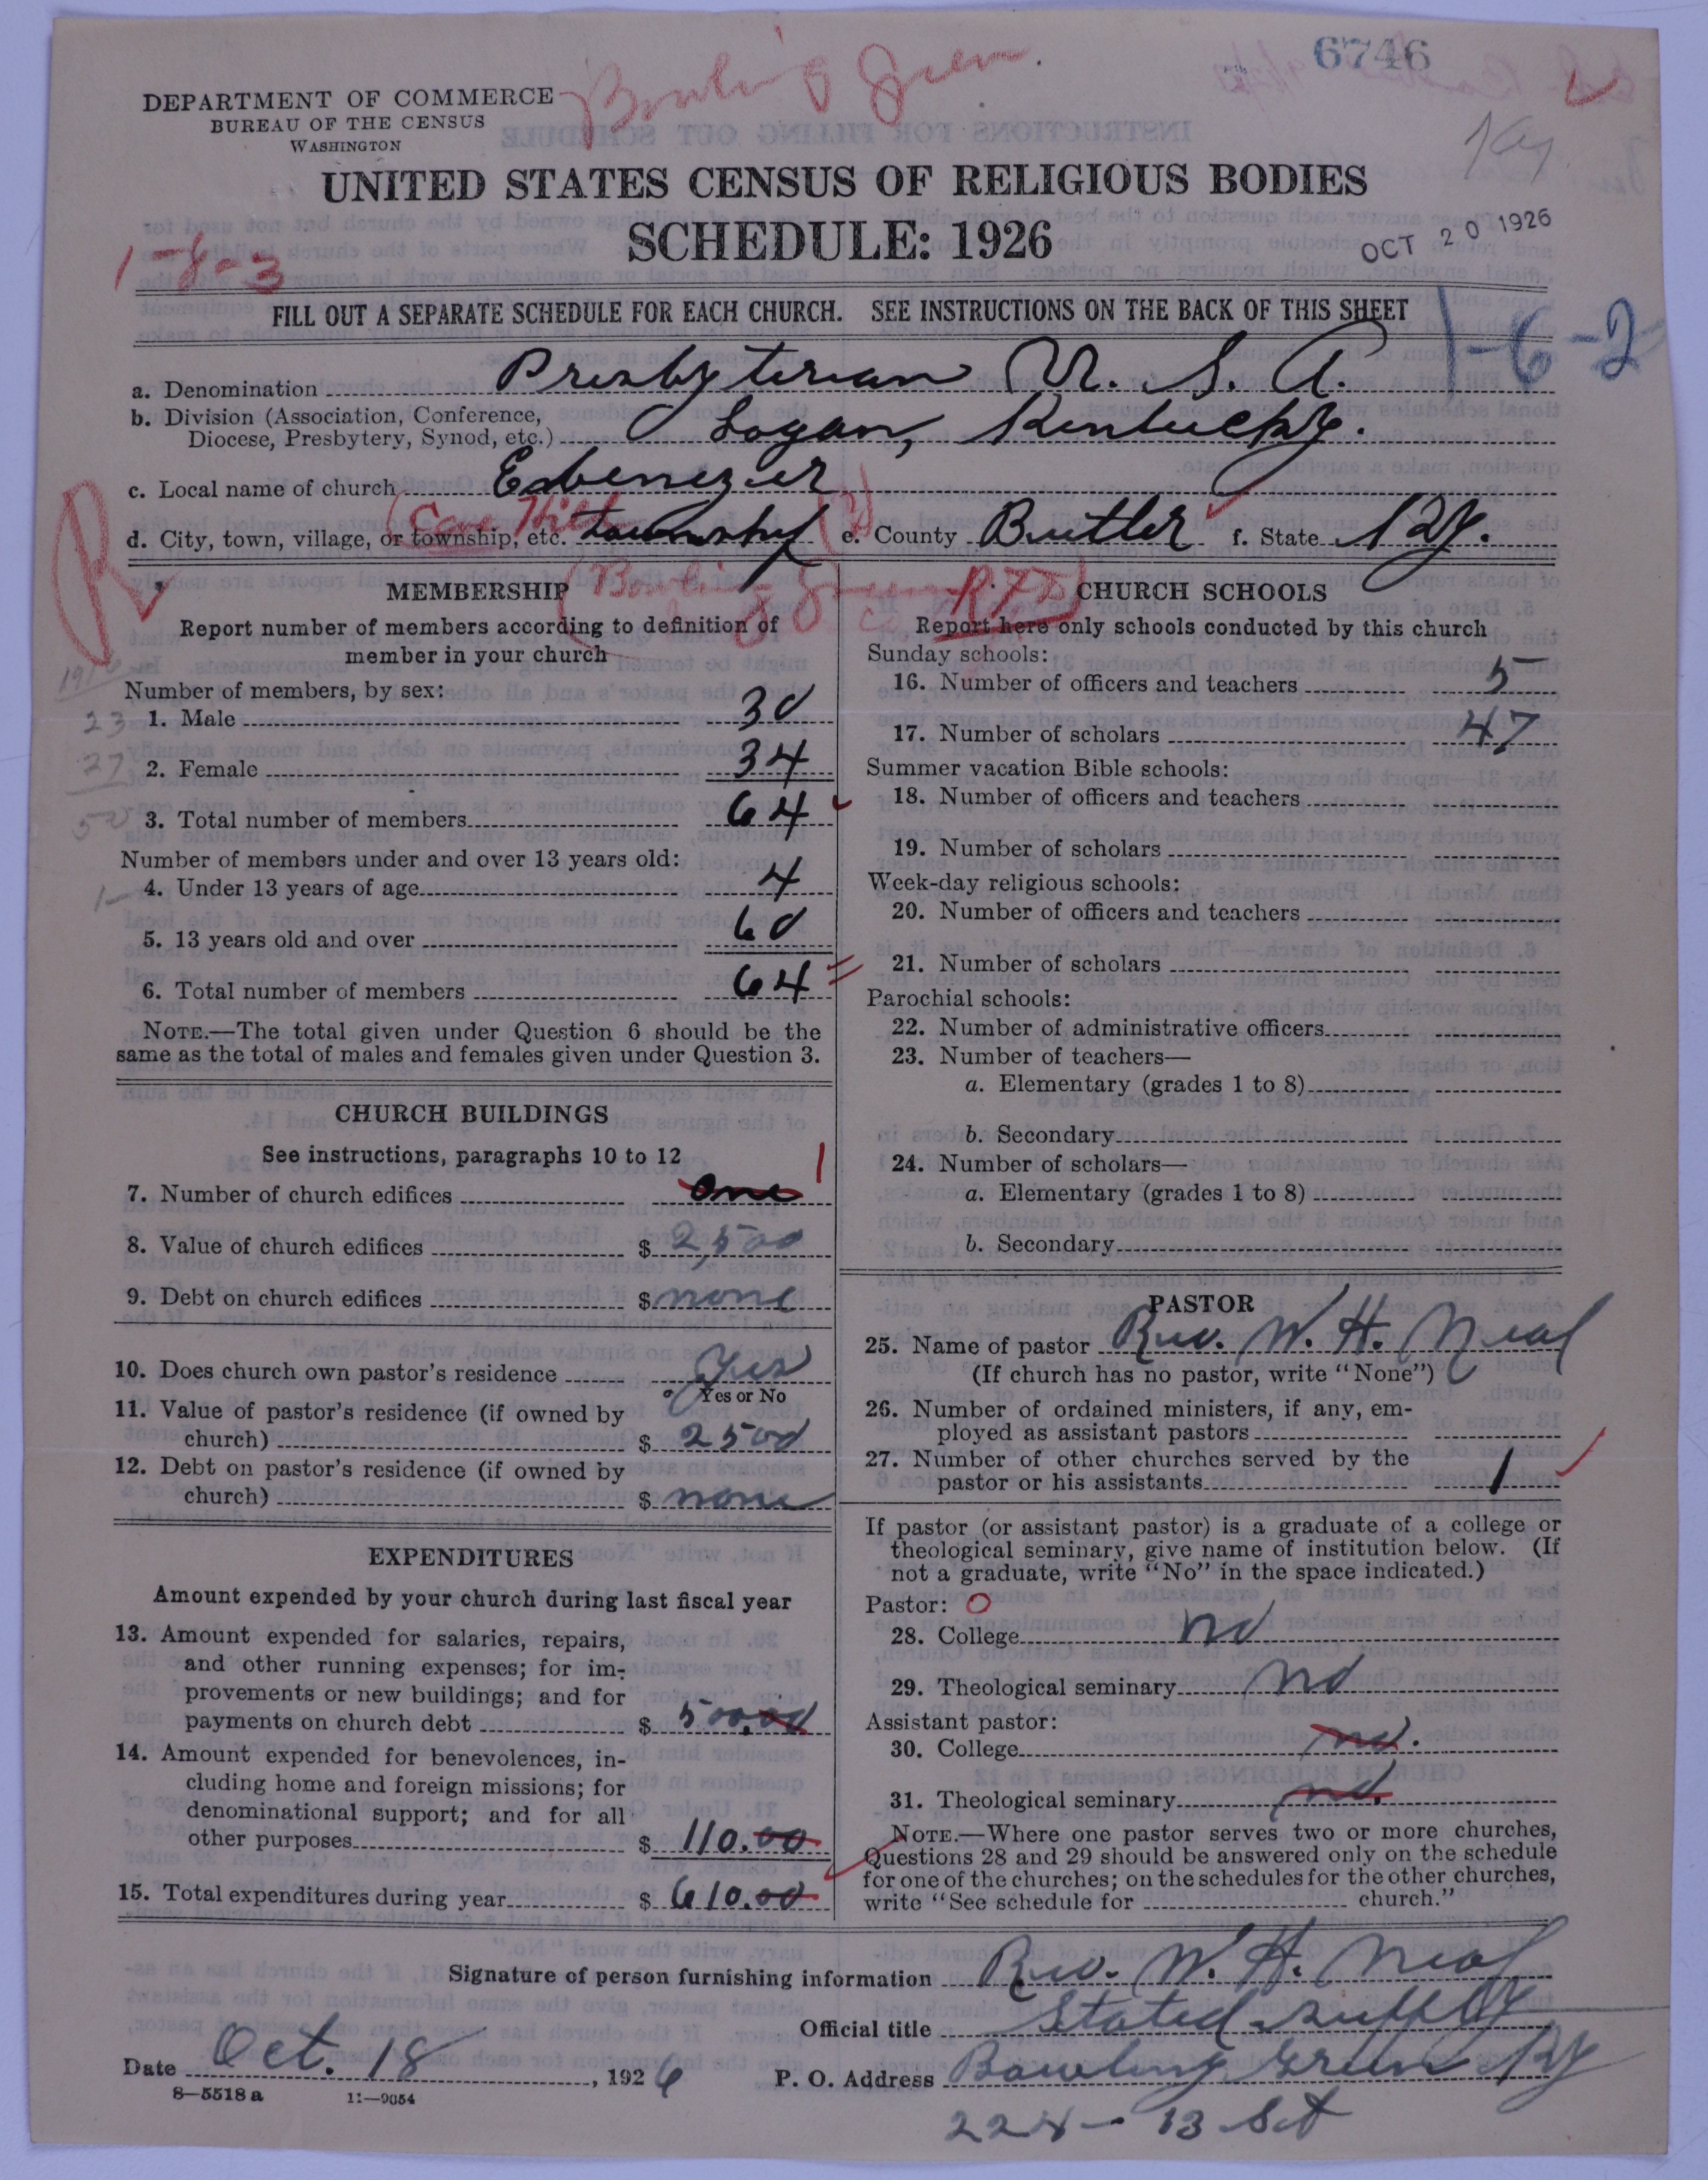 6746
Bowling Green.
Ky
DEPARTMENT OF COMMERCE
BUREAU OF THE CENSUS
WASHINGTON
UNITED STATES CENSUS OF RELIGIOUS BODIES
SCHEDULE: 1926
OCT 20 1926
1-8-3
FILL OUT A SEPARATE SCHEDULE FOR EACH CHURCH. SEE INSTRUCTIONS ON THE BACK OF THIS SHEET
1-6-2
a. Denomination Presbyterian U. S. A.
b. Division (Association, Conference,
Diocese, Presbytery, Synod, etc.) Logan, Kentucky.
c. Local name of church Ebenezer
d. City, town, village, or township, etc. township e. County Butler f. State Ky.
R
(Bowling Green RFD)
MEMBERSHIP
Report number of members according to definition of
member in your church
1916
Number of members, by sex:
23 1. Male 30
27 2. Female 34
50 3. Total number of members 64
Number of members under and over 13 years old:
1- 4. Under 13 years of age 4
5. 13 years old and over 60
6. Total number of members 64
NOTE.—The total given under Question 6 should be the
same as the total of males and females given under Question 3.
CHURCH BUILDINGS
See instructions, paragraphs 10 to 12
7. Number of church edifices one 1
8. Value of church edifices $ 2,500
9. Debt on church edifices $ none
10. Does church own pastor's residence yes
Yes or No
11. Value of pastor's residence (if owned by
church) $ 2500
12. Debt on pastor's residence (if owned by
church) $ none
EXPENDITURES
Amount expended by your church during last fiscal year
13. Amount expended for salaries, repairs,
and other running expenses; for im-
provements or new buildings; and for
payments on church debt $ 500.00
14. Amount expended for benevolences, in-
cluding home and foreign missions; for
denominational support; and for all
other purposes $ 110.00
15. Total expenditures during year $ 610.00
CHURCH SCHOOLS
Report here only schools conducted by this church
Sunday schools:
16. Number of officers and teachers 5
17. Number of scholars 47
Summer vacation Bible schools:
18. Number of officers and teachers
19. Number of scholars
Week-day religious schools:
20. Number of officers and teachers
21. Number of scholars
Parochial schools:
22. Number of administrative officers
23. Number of teachers—
a. Elementary (grades 1 to 8)
b. Secondary
24. Number of scholars—
a. Elementary (grades 1 to 8)
b. Secondary
PASTOR
25. Name of pastor Rev. W. H. Neal
(If church has no pastor, write "None")
26. Number of ordained ministers, if any, em-
ployed as assistant pastors
27. Number of other churches served by the
pastor or his assistants 1
If pastor (or assistant pastor) is a graduate of a college or
theological seminary, give name of institution below. (If
not a graduate, write "No" in the space indicated.)
Pastor: O
28. College no
29. Theological seminary no
Assistant pastor:
30. College no.
31. Theological seminary no.
NOTE.—Where one pastor serves two or more churches,
Questions 28 and 29 should be answered only on the schedule
for one of the churches; on the schedules for the other churches,
write "See schedule for church."
Signature of person furnishing information Rev. W. H. Neal
Official title Stated supply
Date Oct. 18, 1926 P. O. Address Bowling Green Ky
224-13 St
8-5518a 11-9054